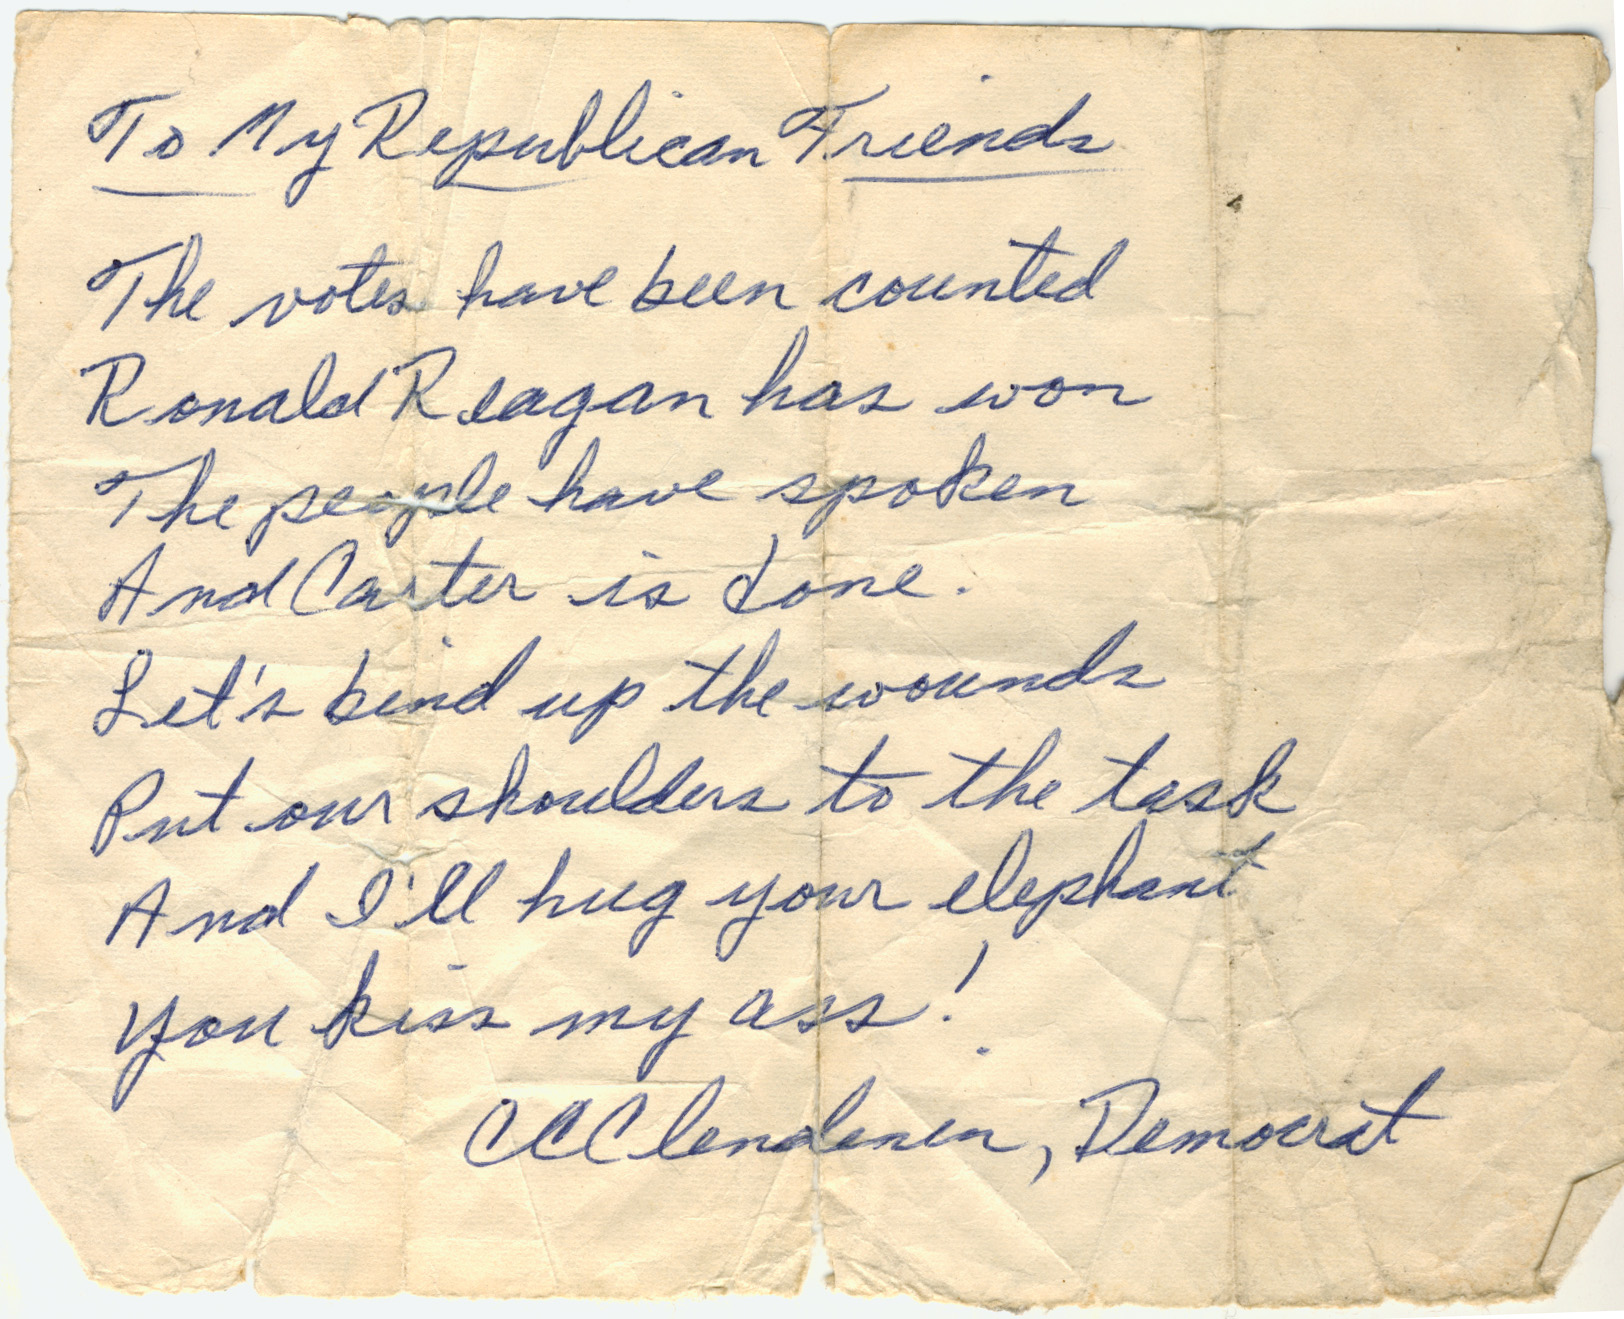 To My Republican Friends
The votes have been counted
Ronald Reagan has won
The people have spoken
And Carter is done.
Let's bind up the wounds
Put our shoulders to the task
And I'll hug your elephant
You kiss my ass!
CCClendenin, Democrat